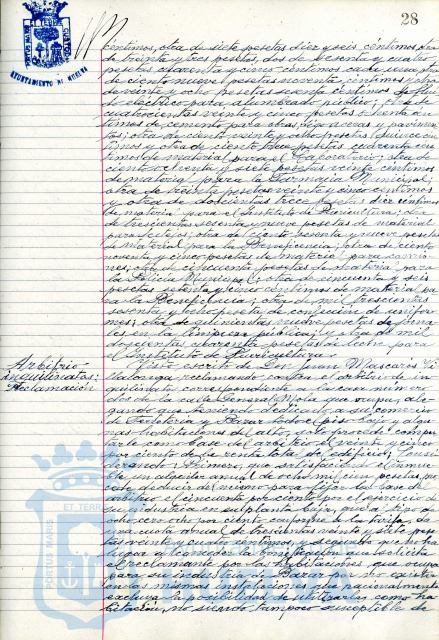 28
AYUNTAMIENTO DE HUELVA
céntimos, otra de siete pesetas diez y seis céntimos, otra
de treinta y tres pesetas, dos de sesenta y cuatro
pesetas cuarenta y cinco céntimos cada una, otra
de ciento nueve pesetas noventa céntimos, otra
de veinte y ocho pesetas sesenta céntimos de flui
do eléctrico para alumbrado público; otra de
cuatrocientas veinte y cinco pesetas ochenta cén
timos de cemento para obras, vías, aceras y pavimen
tos; otra de ciento veinte y ocho pesetas quince cén
timos y otra de ciento trece pesetas cuarenta cén
timos de material para el Laboratorio; otra de
ciento ochenta y siete pesetas veinte céntimos
de material para la Farmacia Municipal;
otra de treinta pesetas veinte y cinco céntimos
y otra de doscientas trece pesetas diez céntimos
de material para el Instituto de Puericultura; otra
de trescientas sesenta y nueve pesetas de material
para ; otra de ciento sesenta y nueve pesetas
de material para la Beneficencia; otra de ciento
noventa y cinco pesetas de material para camio
nes; otra de cincuenta pesetas de material para
la Policía Municipal; otra de cincuenta y seis
pesetas setenta y cinco céntimos de material pa
ra la Beneficencia; otra de mil trescientas
sesenta y ocho pesetas de confección de unifor
mes; otra de quinientas nueve pesetas de jorna
les en la limpieza pública; y otra de mil
doscientas cuarenta pesetas de leche para
el Instituto de Puericultura.
Arbitrio
inquilinatos:
Reclamación
Visto escrito de Don Juan Mascarós Vi
llalonga, reclamando contra el arbitrio de in
quilinato correspondiente a la casa número
dos de la calle General Mola que ocupa, ale
gando que teniendo dedicado a su comercio
de Ferretería y Bazar todo el piso bajo y algu
nas habitaciones del alto, solo procede compu
tarle como base del arbitrio el veinte y cinco
por ciento de la renta total del edificio; Consi
derando: Primero, que satisfaciendo el inmue
ble un alquiler anual de ocho mil cien pesetas, pro
cede deducir del mismo para fijar la base del
arbitrio el cincuenta por ciento por el ejercicio de
su industria en su planta baja, que al tipo de
ocho cero ocho por ciento conforme a la tarifa, da
una cuota anual de trescientas veinte y siete pese
tas veinte y cuatro céntimos, y segundo que no ha
lugar a conceder la bonificación que solicita
el reclamante por las habitaciones que ocupa
para su industria de Bazar por no existir
en las mismas instalaciones que racionalmente
excluya la posibilidad de utilizarlas como ha
bitación, no siendo tampoco susceptible de